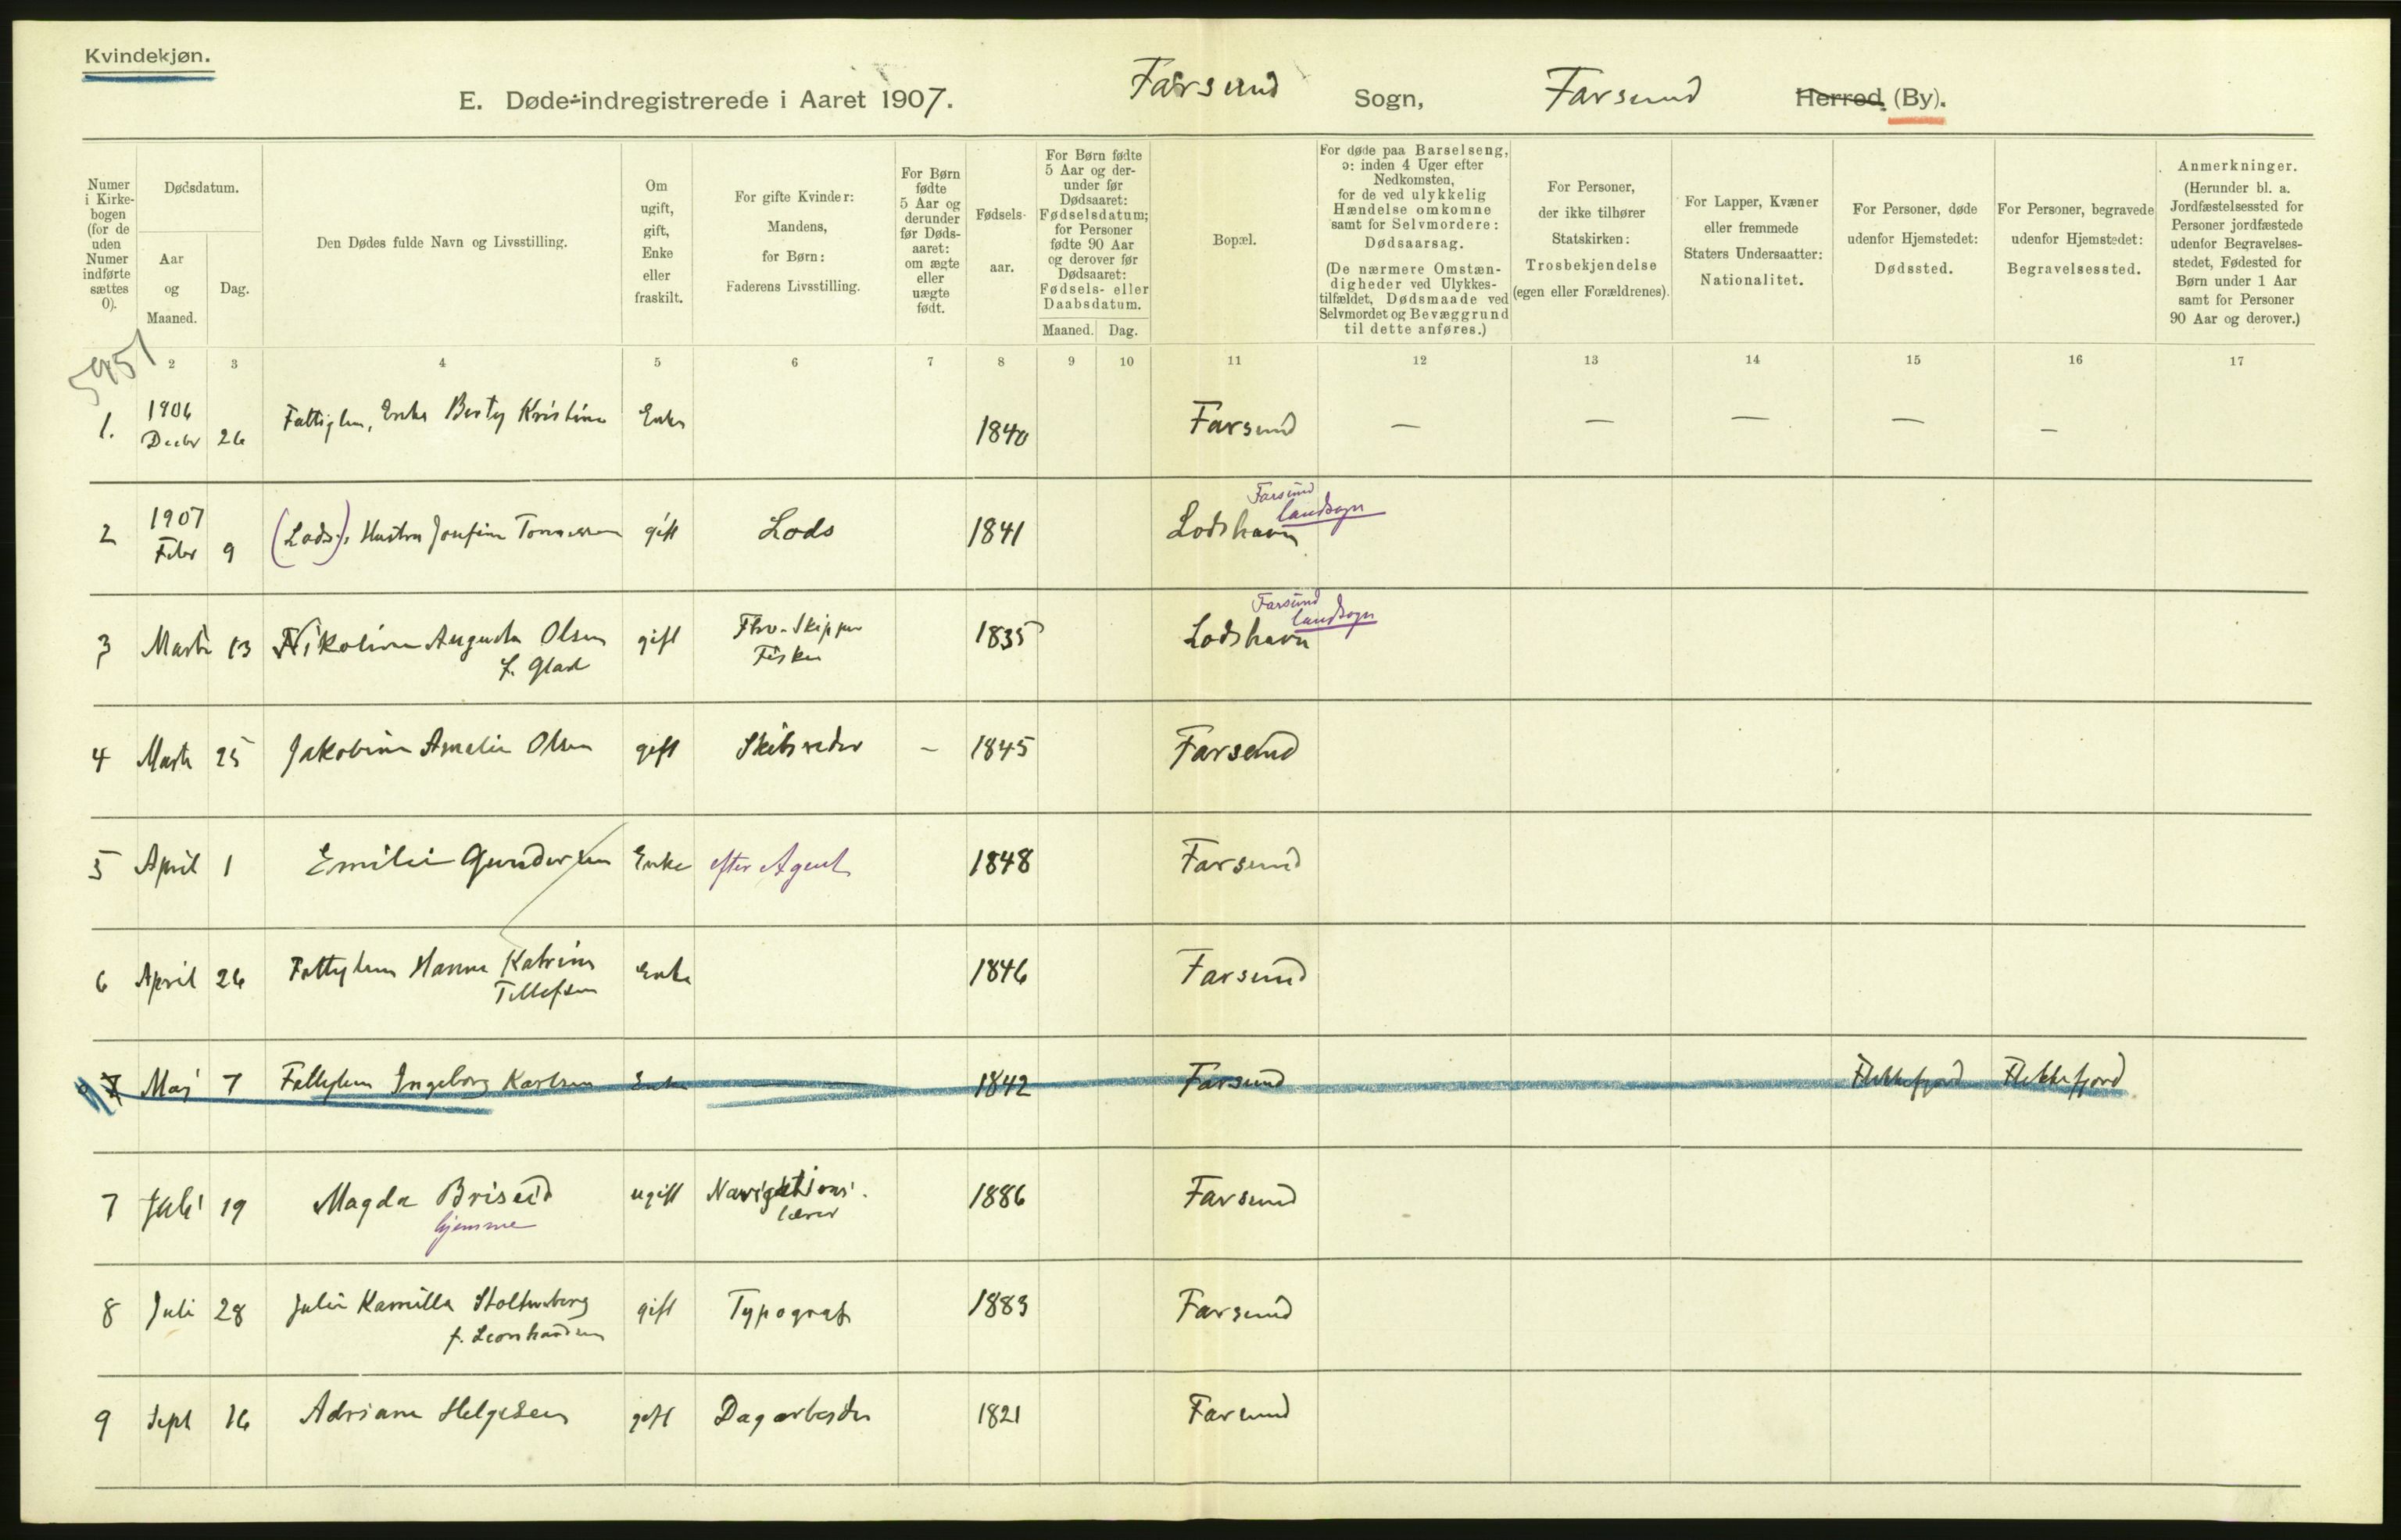 Kvindekjøn.
E. Døde-indregistrerede i Aaret 1907.
Farsund Sogn, Farsund Herred (By).
Numer i Kirke-bogen (for de uden Numer indførte sættes 0).
Dødsdatum.
Aar og Maaned.
Dag.
Den Dødes fulde Navn og Livsstilling.
Om ugift, gift, Enke eller fraskilt.
For gifte Kvinder: Mandens, for Børn: Faderens Livsstilling.
For Børn fødte 5 Aar og derunder før Døds-aaret: om ægte eller uægte født.
Fødsels-aar.
For Børn fødte 5 Aar og der-under før Dødsaaret: Fødselsdatum; for Personer fødte 90 Aar og derover før Dødsaaret: Fødsels- eller Daabsdatum.
Maaned. Dag.
Bopæl.
For døde paa Barselseng, ɔ: inden 4 Uger efter Nedkomsten, for de ved ulykkelig Hændelse omkomne samt for Selvmordere: Dødsaarsag.
(De nærmere Omstæn-digheder ved Ulykkes-tilfældet, Dødsmaade ved Selvmordet og Bevæggrund til dette anføres.)
For Personer, der ikke tilhører Statskirken: Trosbekjendelse (egen eller Forældrenes).
For Lapper, Kvæner eller fremmede Staters Undersaatter: Nationalitet.
For Personer, døde udenfor Hjemstedet: Dødssted.
For Personer, begravede udenfor Hjemstedet: Begravelsessted.
Anmerkninger.
(Herunder bl. a. Jordfæstelsessted for Personer jordfæstede udenfor Begravelses-stedet, Fødested for Børn under 1 Aar samt for Personer 90 Aar og derover.)
5951
2 3 4 5 6 7 8 9 10 11 12 13 14 15 16 17
1. 1906 Decbr 26 Fattiglem, Enke Berty Kristine Enke 1840 Farsund — — — — —
2 1907 Febr 9 (Lods), Hustru Josefine Tønnessen gift Lods 1841 Lodshavn Farsund landsogn
3 Marts 13 Nikoline Augusta Olsen gift Fhv. Skipper 1835 Lodshavn Farsund landsogn
f. Glad Fisker
4 Marts 25 Jakobine Amalie Olsen gift Skibsreder – 1845 Farsund
5 April 1 Emilie Gundersen Enke efter Agent 1848 Farsund
6 April 26 Fattiglem Hanne Katrine Enke 1846 Farsund
Tellefsen
7 Maj 7 Fattiglem Ingeborg Karlsen Enke — 1842 Farsund Flekkefjord Flekkefjord
7 Juli 19 Magda Briseid ugift Navigations- 1886 Farsund
hjemme lærer
8 Juli 28 Julie Kamilla Stoltenberg gift Typograf 1883 Farsund
f. Leonhardsen
9 Sept 16 Adriane Helgesen gift Dagarbeider 1821 Farsund